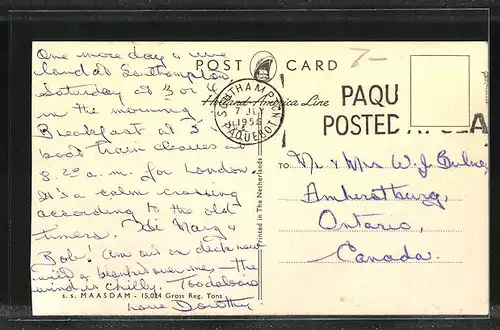 One more day & we
land at Southampton,
Saturday at 3 or 4
in the morning.
Breakfast at 5 &
boat train leaves at
8.20 a.m. for London.
It's a calm crossing
according to the old
timers. Hi Mary &
Bob! Am on deck now
with a blanket over me, - the
wind is chilly. Toodaloo
Love Dorothy
s.s. MAASDAM - 15,024 Gross Reg. Tons
POST CARD
Holland-America Line
Printed in The Netherlands
SOUTHAMPTON
1958
PAQUEBOT
7-
PAQU
POSTED AT SEA
TO
Mr & Mrs W. J.
Amherstburg,
Ontario,
Canada.